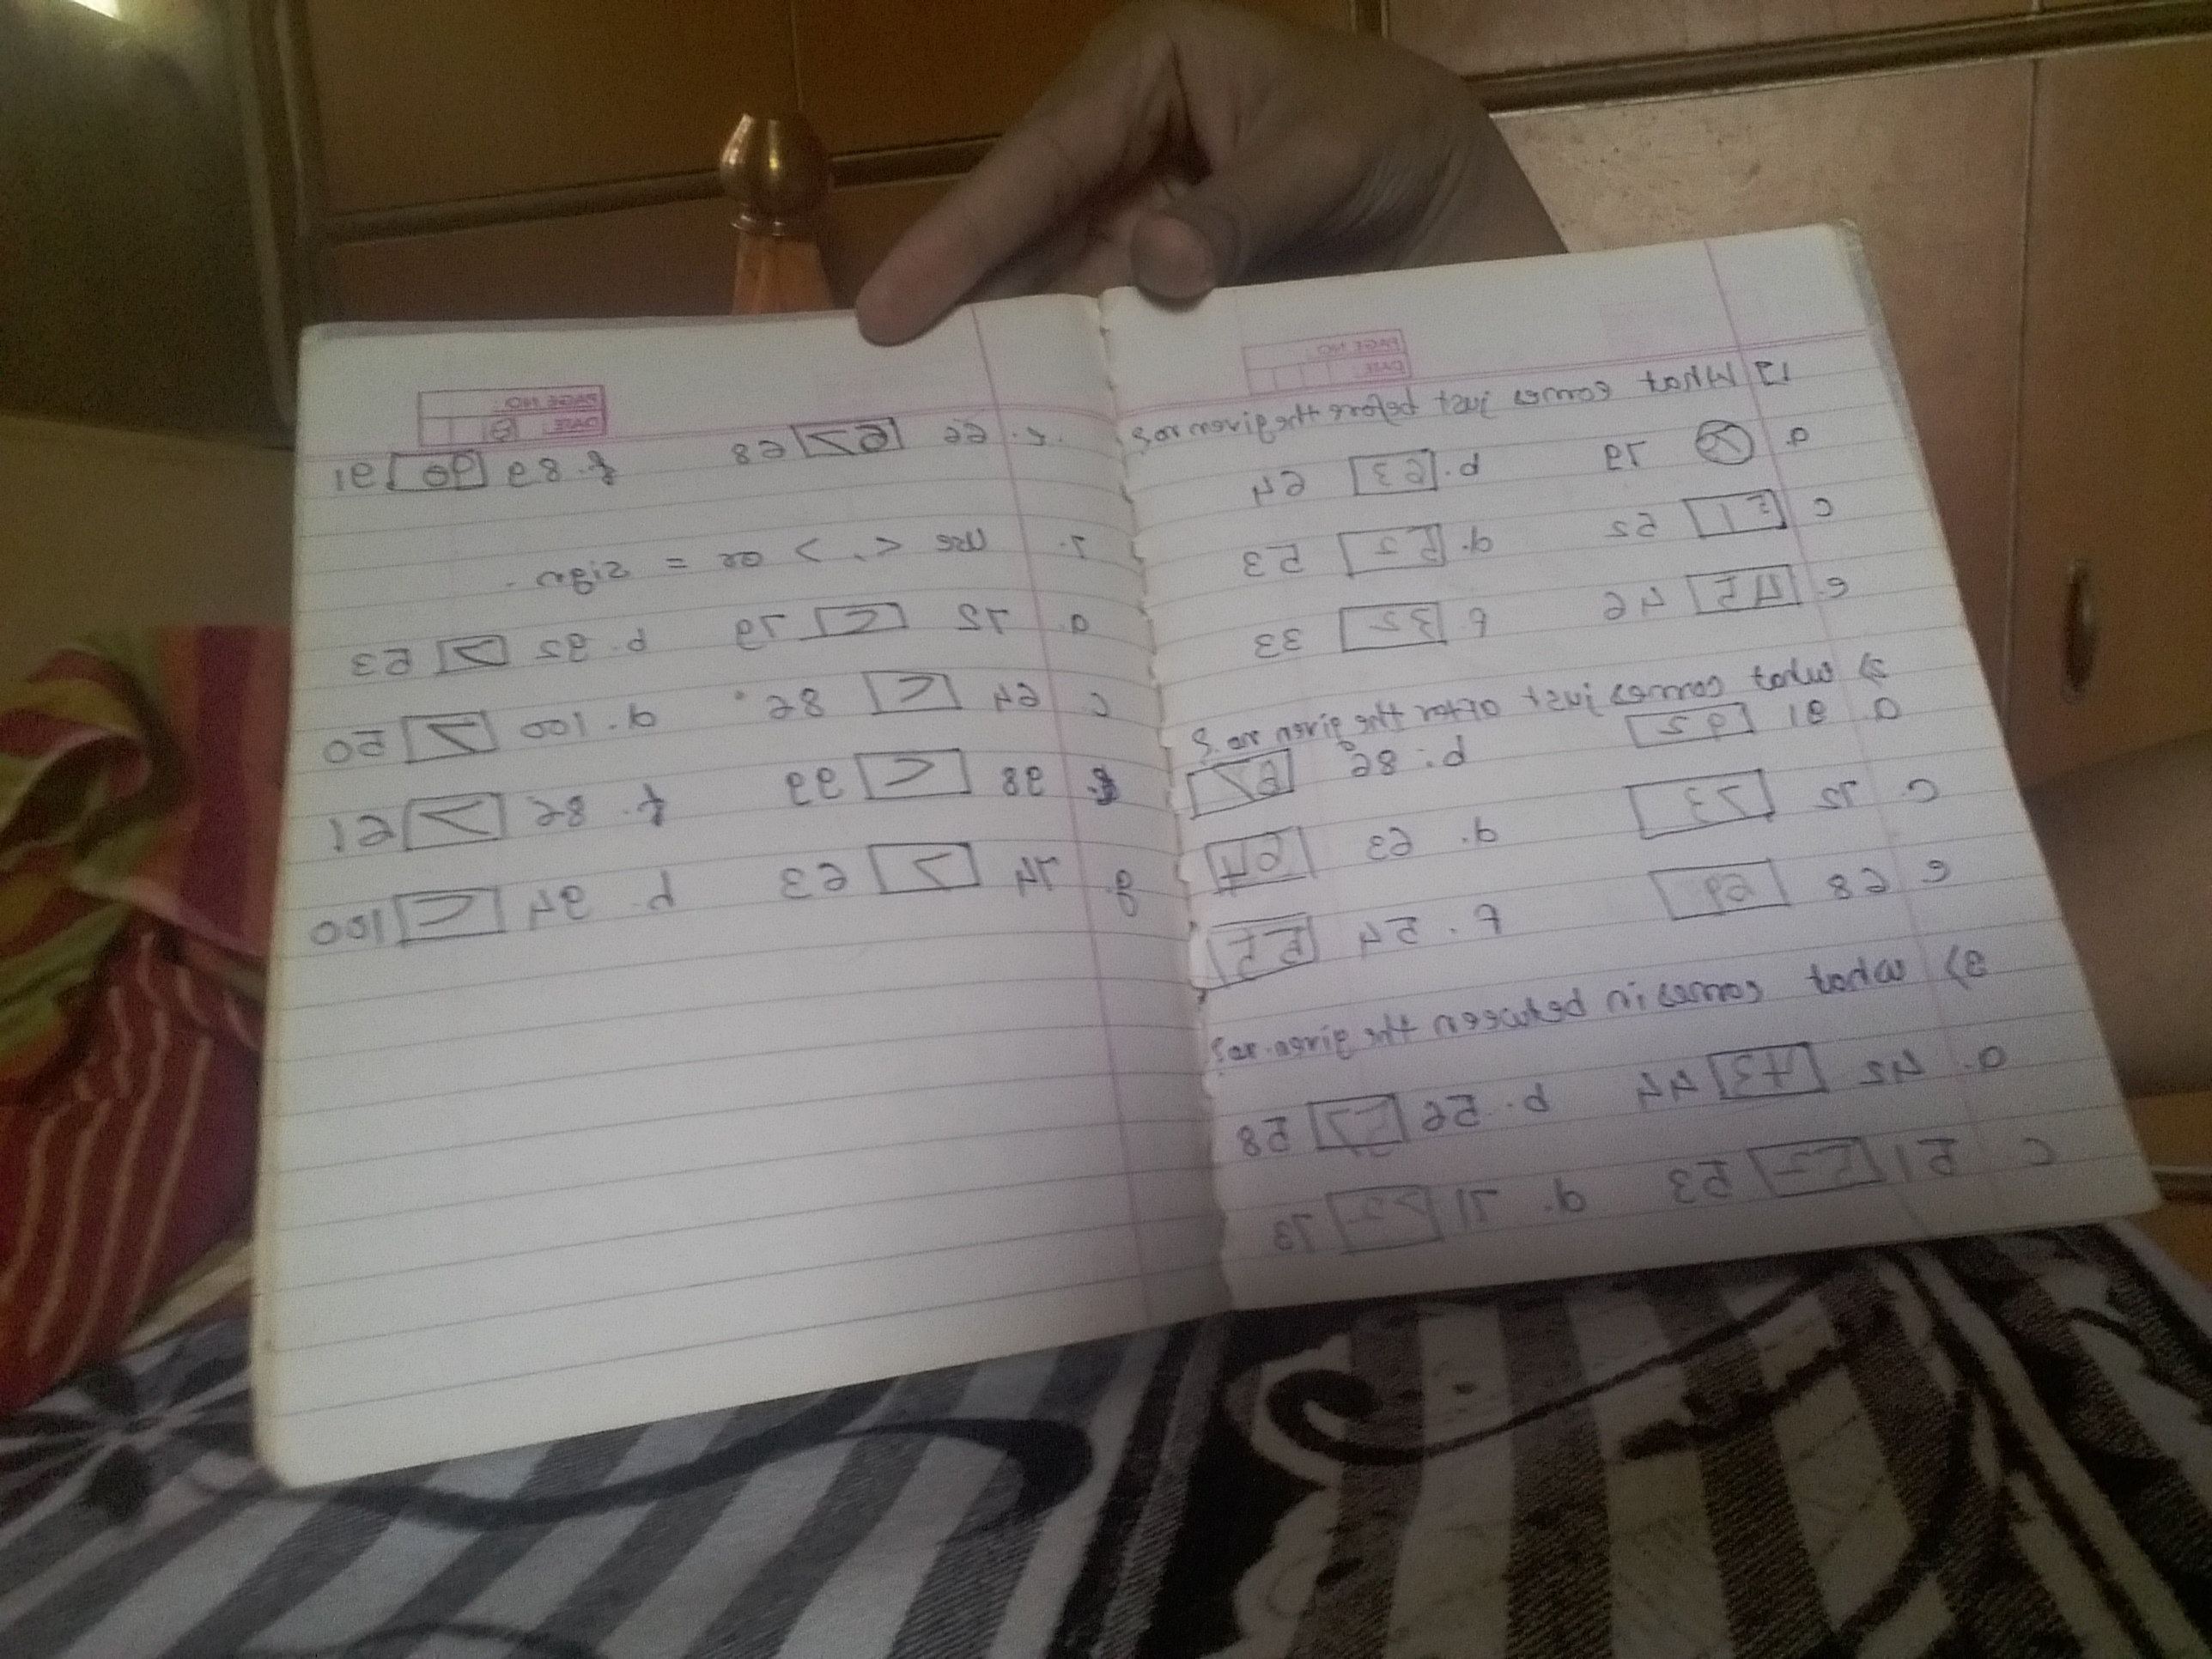 1) What comes just before the given no?
a 79 b. 63 64
c 51 52 d. 52 53
e. 45 46 f 32 33
2) What comes just after the given no?
a 91 92 b. 86
c 72 73 d. 63 64
e 68 69 f. 54 55
3) What comes in between the given no?
a. 42 43 44 b. 56 57 58
c. 51 52 53 d. 71 72 73
DATE
PAGE NO.
e. 66 67 68
f. 89 90 91
4. Use <, > or = sign.
a. 72 < 79 b. 92 > 53
c 64 < 86. d. 100 > 50
98 < 99 f. 86 > 61
g. 74 > 63 h. 94 < 100
DATE
PAGE NO.